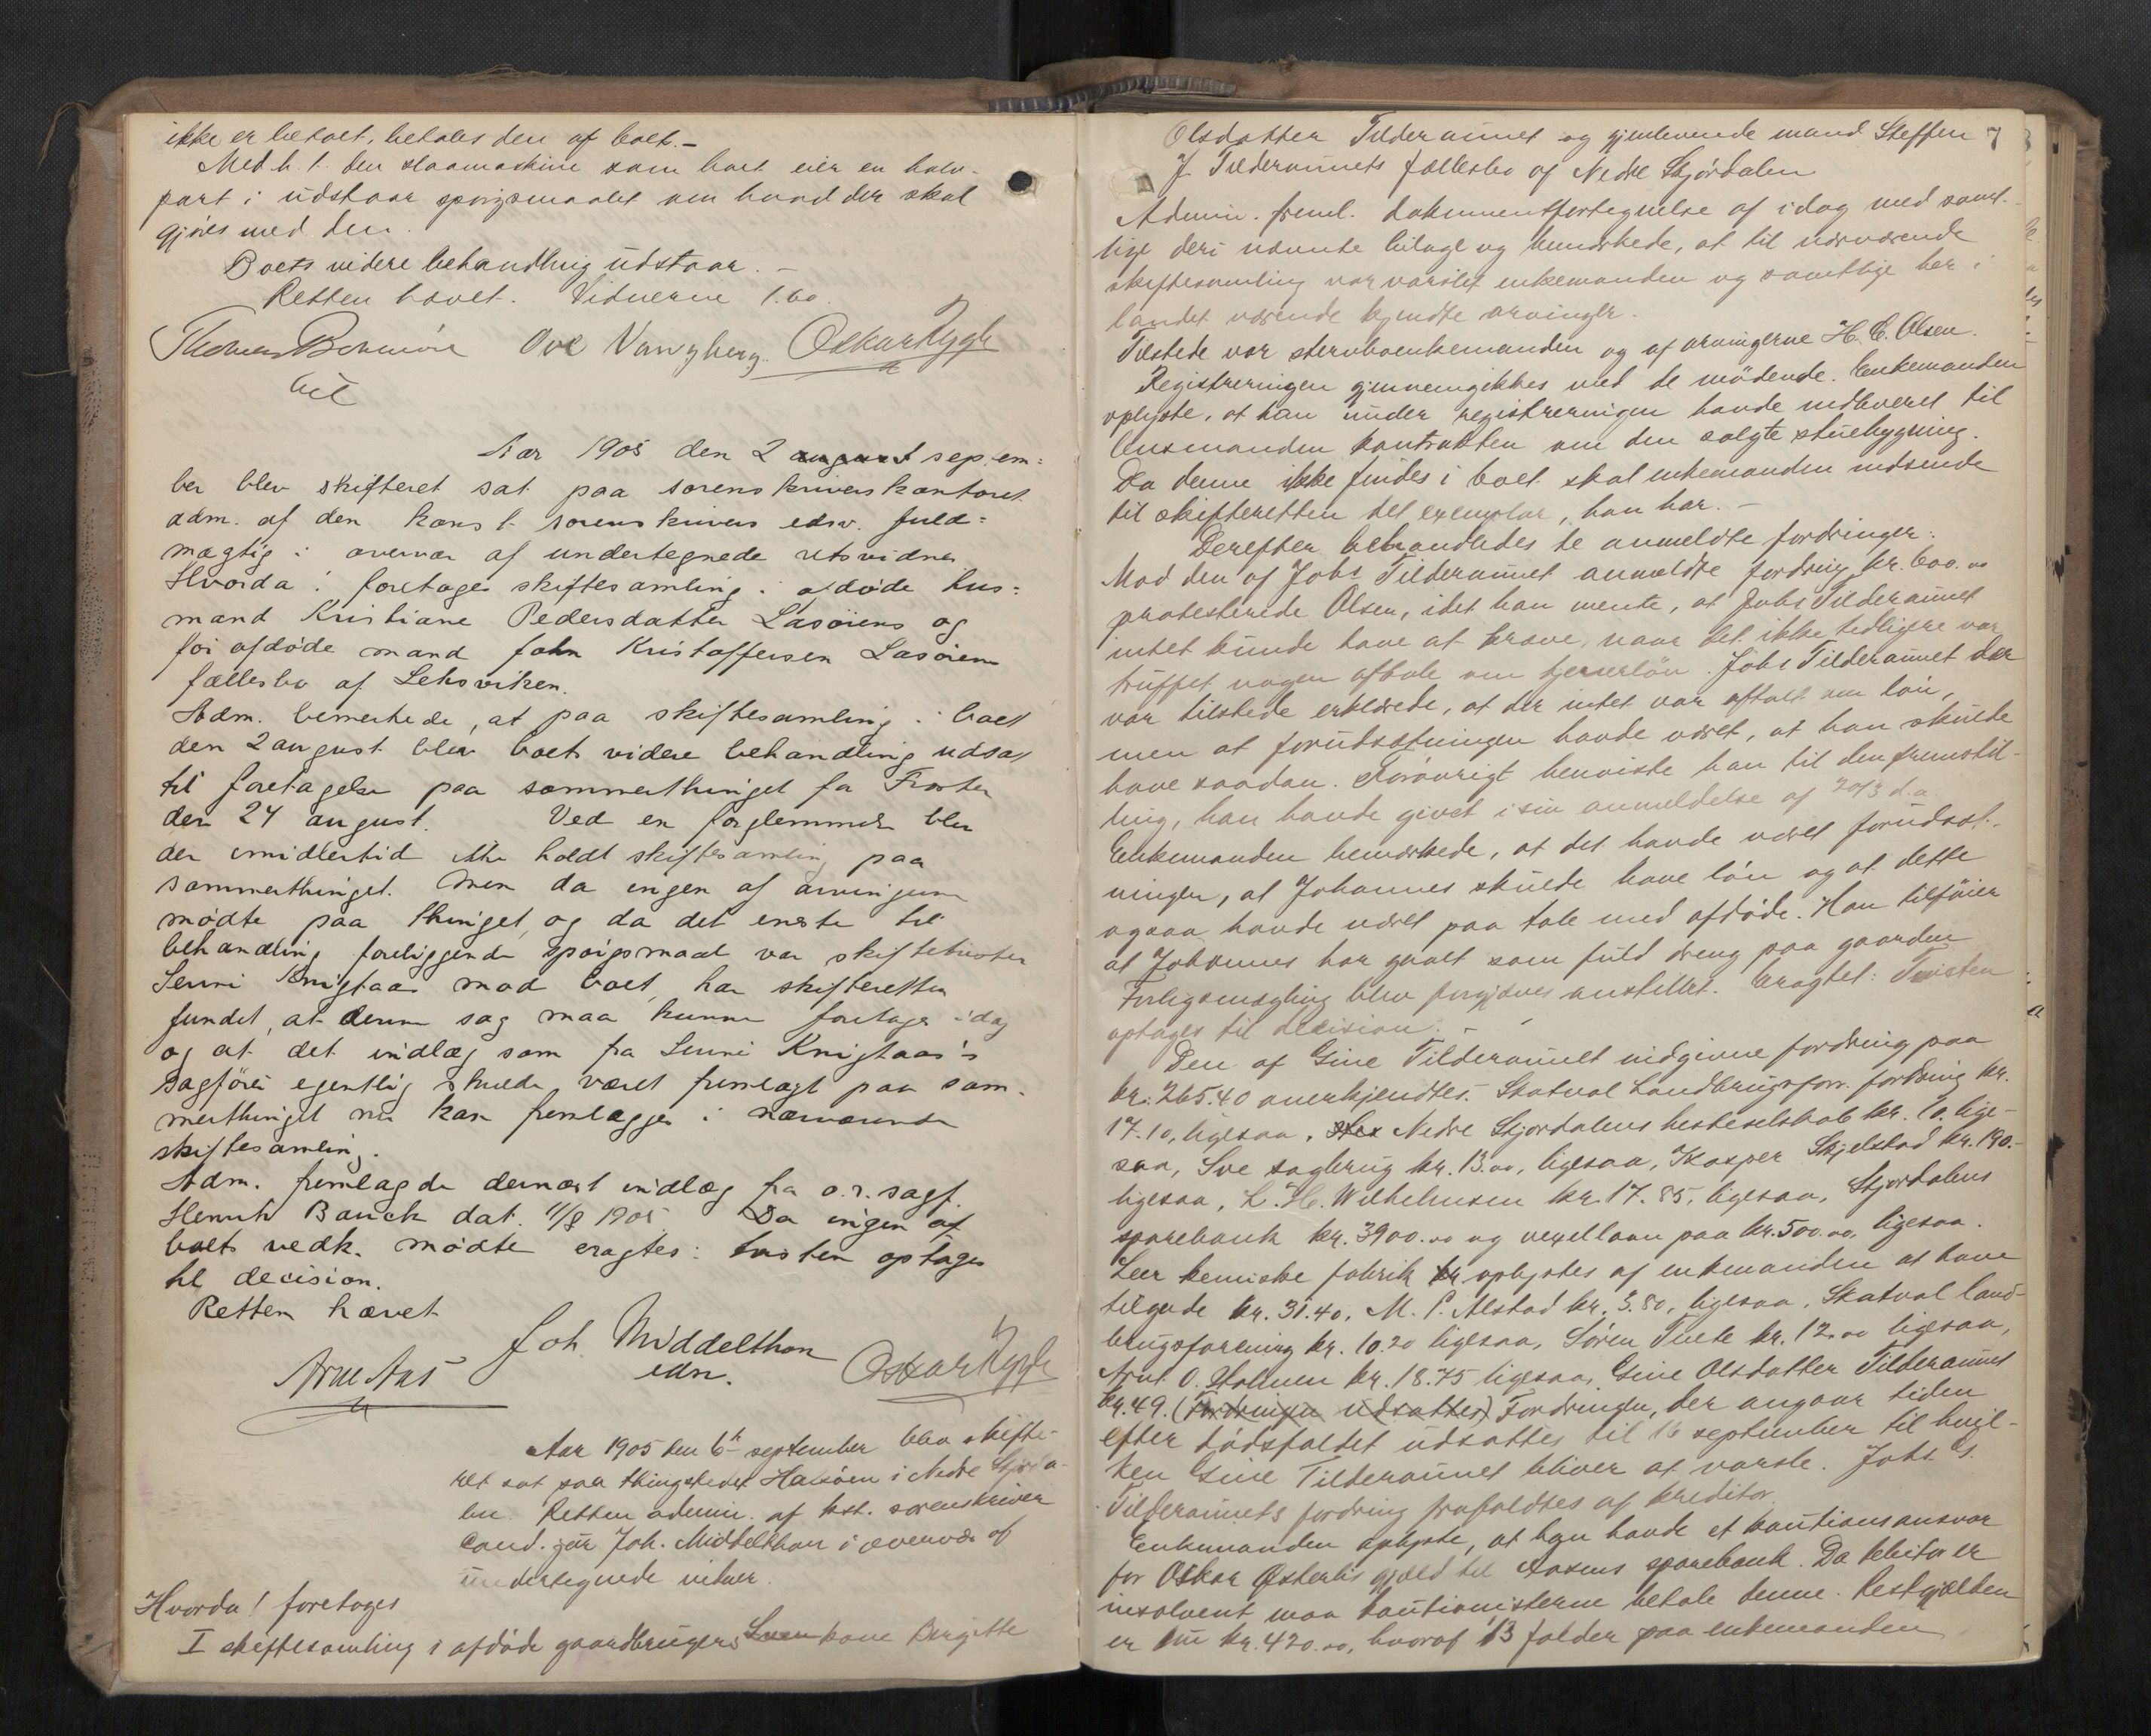 ikke er betalt, betales den af boet. –
Med h. t. den slaamaskine som boet eier en halv-
part i udstaar spørgsmaalet om hvad der skal
gjøres med den.
Boets videre behandling udstaar. –
Retten hævet. Vidnerne 1.60.
Ove Vangberg. Oskar Rygh
Aar 1905 den 2 august septem=
ber blev skifteret sat paa sorenskriverkontoret
adm. af den konst. sorenskrivers edsv. fuld=
mægtig i overvær af undertegnede retsvidner
Hvorda! foretages skiftesamling i afdøde hus=
mand Kristiane Pedersdatter Læsøiens og
før afdøde mand John Kristoffersen Læsøiens
fællesbo af Leksviken.
Adm. bemerkede, at paa skiftesamling i boet
den 2 august blev boets videre behandling udsat
til foretagelse paa sommerthinget for Frosten
den 24 august. Ved en forglemmelse blev
der imidlertid ikke holdt skiftesamling paa
sommerthinget. Men da ingen af arvingerne
mødte paa thinget, og da det eneste til
behandling foreliggende spørgsmaal var skiftetvisten
mod boet, har skifteretten
fundet, at denne sag maa kunne foretages idag
og at det indlæg som fra
sagfører egentlig skulde været fremlagt paa som-
merthinget nu kan fremlægges i nærværende
skiftesamling.
Adm. fremlagde dernæst indlæg fra o.r.sagf.
Henrik Bauck dat. 11/8 1905. Da ingen af
boets vedk. mødte eragtes: Tvisten optages
til decision.
Retten hævet
Joh. Middelthon
edsv.
Arne Aas Oskar Rygh
Aar 1905 den 6te september blev skifte-
ret sat paa thingstedet Halsøen i Nedre Stjørda-
len. Retten admin. af kst. sorenskriver
cand. jur Joh. Middelthon i overvær af
undertegnede vidner.
Hvorda! foretoges
I skiftesamling i afdøde gaardbrugers kone Birgitte
7
Olsdatter Tilderaunet og gjenlevende mand Steffen
J. Tilderaunets fællesbo af Nedre Stjørdalen
Admin. freml. dokumentfortegnelse af idag med samt-
lige deri nævnte bilage og bemærkede, at til nærværende
skiftesamling var varslet enkemanden og samtlige her i
landet værende kjendte arvinger.
Tilstede var stervboenkemanden og af arvingerne H. E. Olsen.
Registreringen gjennemgikkes med de mødende. Enkemanden
oplyste, at han under registreringen havde indleveret til
lensmanden kontrakten om den solgte stuebygning.
Da denne ikke findes i boet skal enkemanden indsende
til skifteretten det exemplar, han har. –
Derefter behandledes de anmeldte fordringer.
Mod den af Johs Tilderaunet anmeldte fordring kr. 600.00
protesterede Olsen, idet han mente, at Johs Tilderaunet
intet kunde have at kræve, naar det ikke tidligere var
truffet nogen aftale om tjenerløn. Johs Tilderaunet der
var tilstede erklærede, at der intet var aftalt om løn,
men at forudsætningen havde været, at han skulde
have saadan. Forøvrigt henviste han til den fremstil-
ling, han havde givet i sin anmeldelse af 20/3 d.a.
Enkemanden bemærkede, at det havde været forudsæt-
ningen, at Johannes skulde have løn og at dette
ogsaa havde været paa tale med afdøde. Han tilføier
at Johannes har gaaet som fuld dreng paa gaarden
Forligsmægling blev forgjæves anstillet. Eragtet: Tvisten
optages til decision. –
Den af Gine Tilderaunet indgivne fordring paa
kr. 265.40 anerkjendtes. Skatval Landbrugsforr. fordring kr.
17.10, ligesaa, Nedre Stjørdalens hesteselskab kr. 10. lige-
saa, Sve sagbrug kr. 13.00, ligesaa, Kasper Skjelstad kr. 190.–
ligesaa, L. H. Wilhelmsen kr. 17.85, ligesaa, Stjørdalens
sparebank kr. 3900.00 og vexellaan paa kr. 500.00, ligesaa.
Leer kemiske fabrik kr oplystes af enkemanden at have
tilgode kr. 31.40, M. P. Alstad kr. 3.80, ligesaa, Skatval land-
brugsforening kr. 10.20 ligesaa, Søren kr. 12.00 ligesaa,
Arnt O. Holmen kr. 18.75 ligesaa, Gine Olsdatter Tilderaunet
kr. 49. (Fordringen udsattes) Fordringen, der angaar tiden
efter dødsfaldet udsattes til 16 september til hvil-
ken Gine Tilderaunet bliver at varsle. Johs S.
Tilderaunets fordring frafaldtes af kreditor.
Enkemanden oplyste, at han havde et kautionsansvar
for Oskar Østerlis gjæld til Aasens sparebank. Da debitor er
insolvent maa kautionisterne betale denne. Restgjælden
er nu kr. 420.00, hvoraf 1/3 falder paa enkemanden